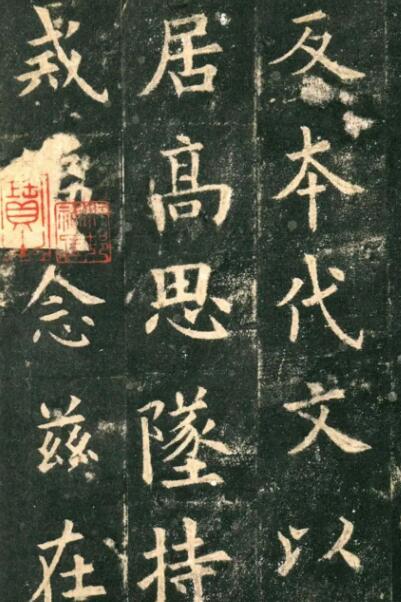 反本代文以
居高思墜持
戒念兹在